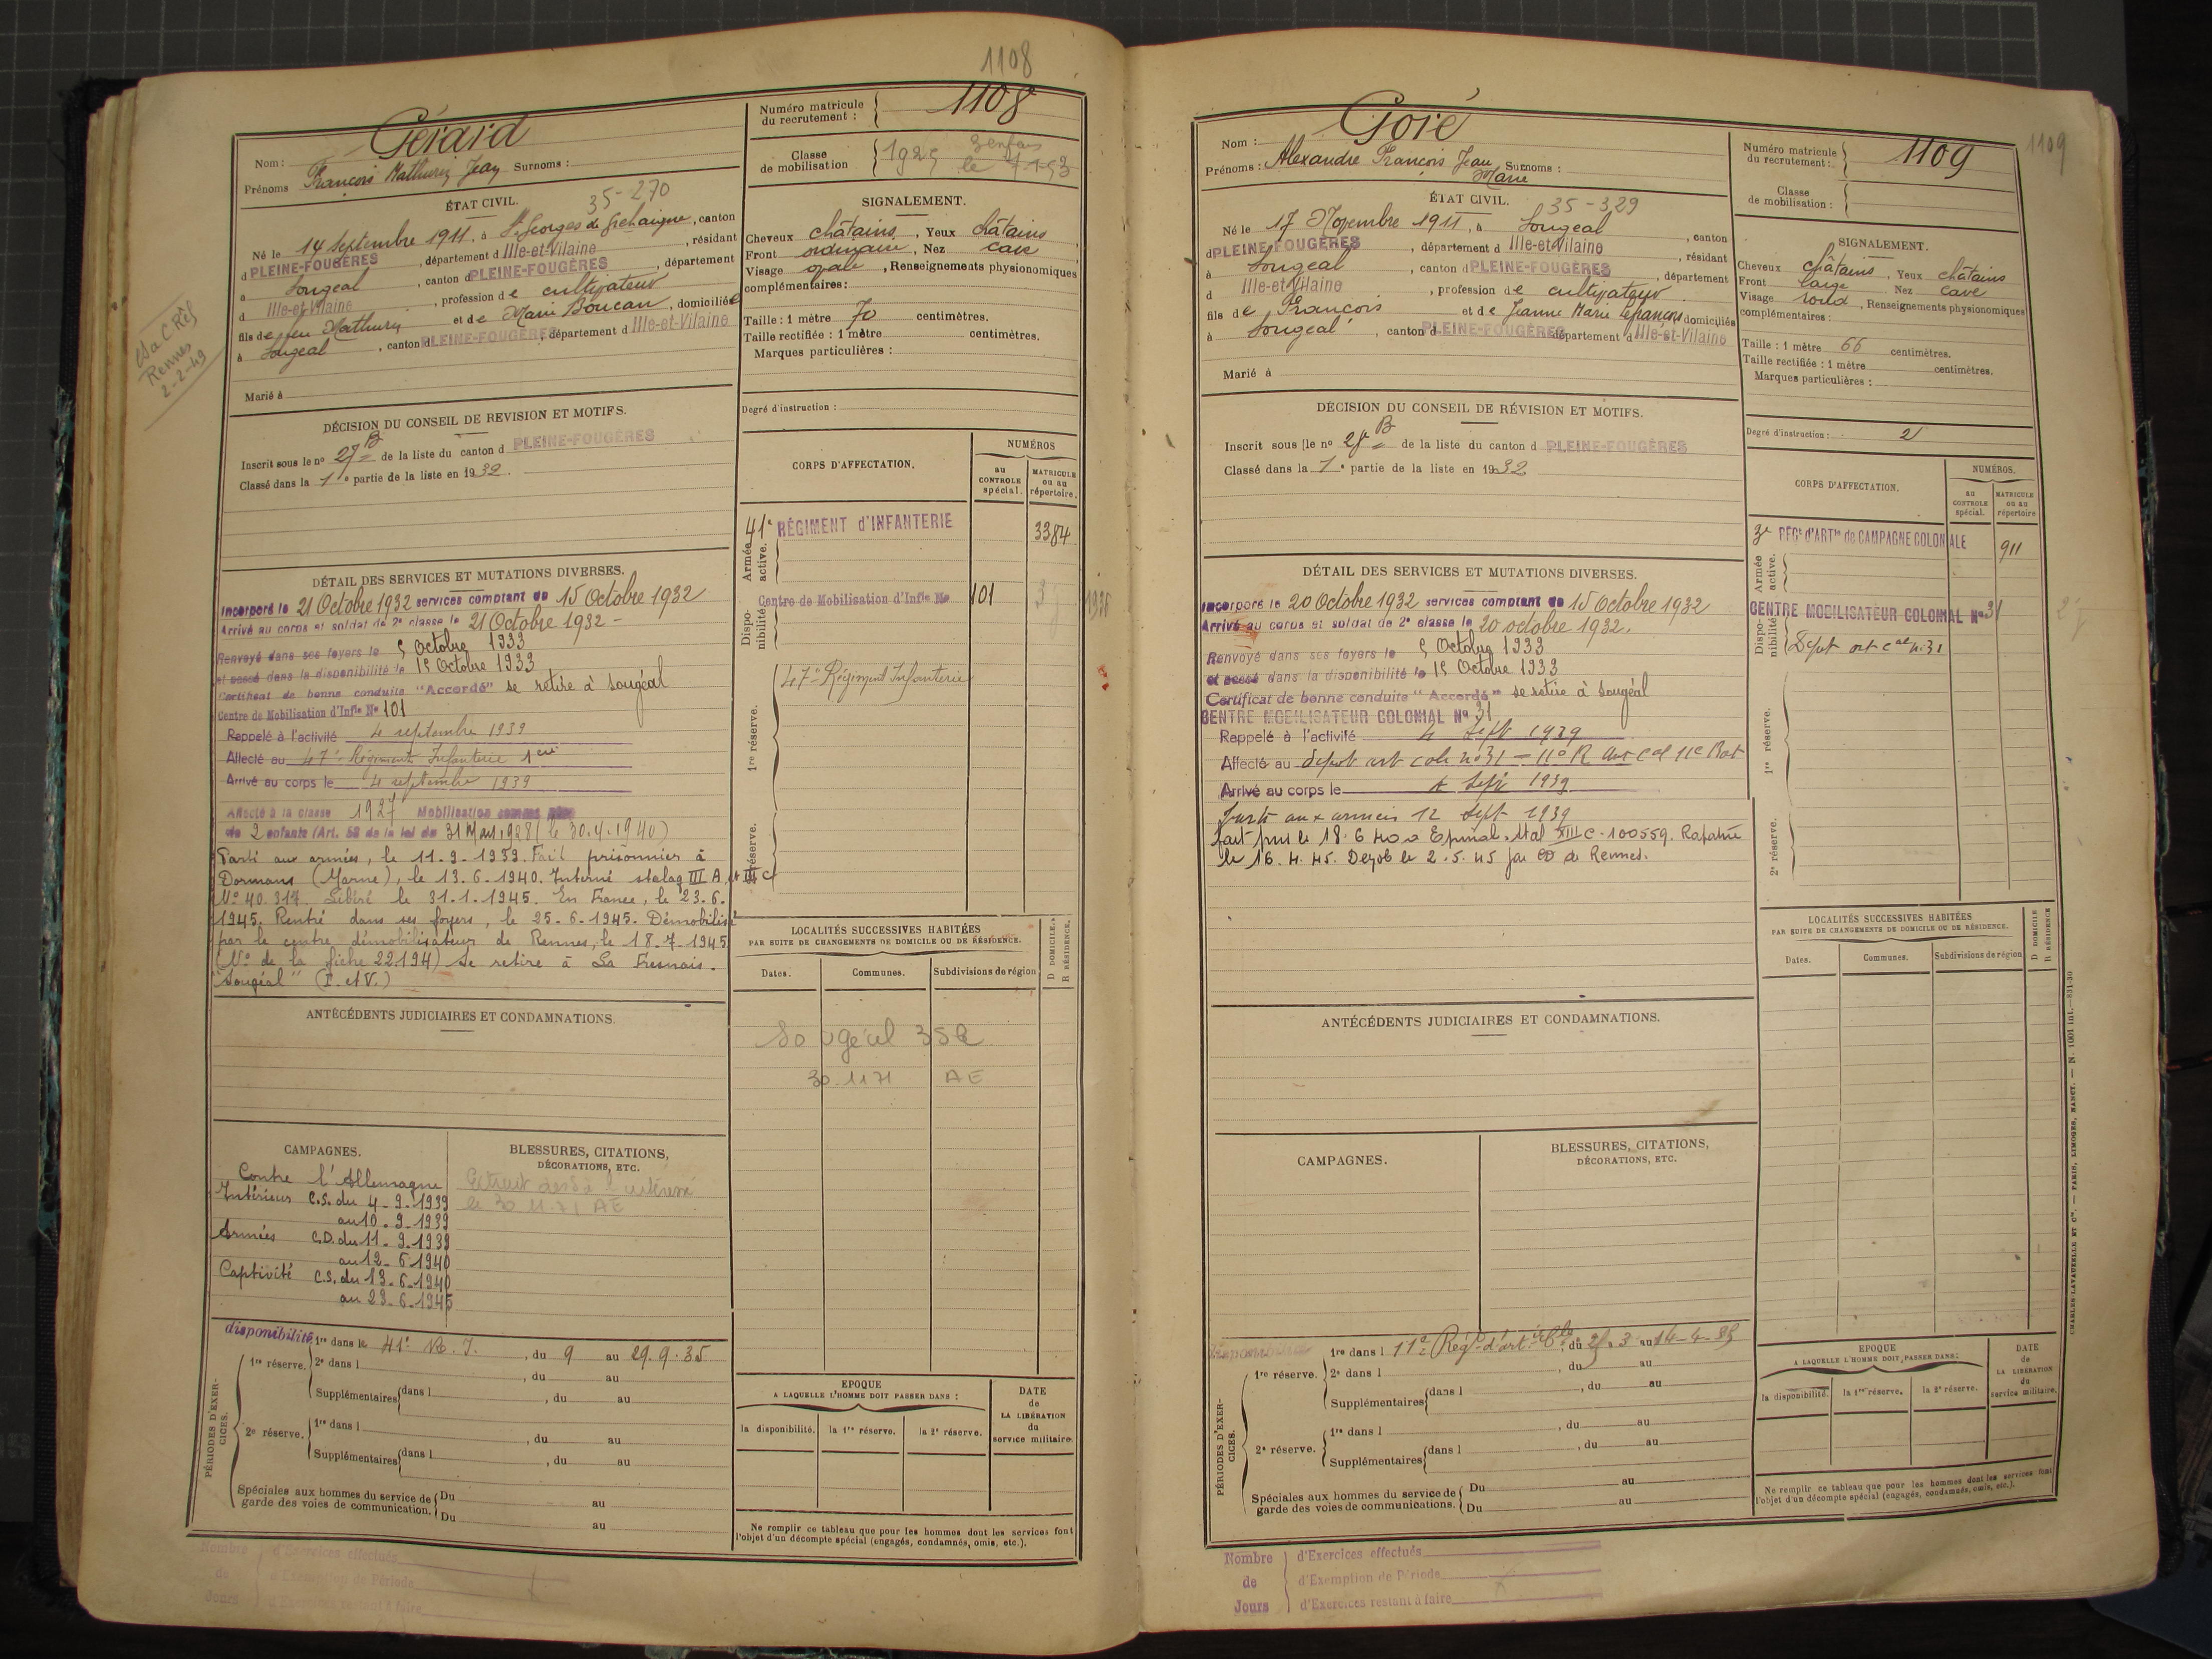 1108
Gérard
Nom :
Prénoms François Mathurin Jean Surnoms :
35-270
ÉTAT CIVIL.
Né le 14 Septembre 1911, à St Georges de Gréhaigne, canton
d PLEINE-FOUGÈRES, département d Ille-et-Vilaine, résidant
à Sougeal, canton d PLEINE-FOUGÈRES, département
d Ille-et-Vilaine, profession de cultivateur
fils de feu Mathurin et de Marie Boucan, domiciliée
à Sougeal, canton d PLEINE-FOUGÈRES, département d Ille-et-Vilaine
Marié à
Rennes
2-2-49
DÉCISION DU CONSEIL DE REVISION ET MOTIFS.
Inscrit sous le nº 27 B de la liste du canton d PLEINE-FOUGÈRES
Classé dans la 1e partie de la liste en 1932.
DÉTAIL DES SERVICES ET MUTATIONS DIVERSES.
Incorporé le 21 Octobre 1932 services comptant du 15 Octobre 1932
Arrivé au corps et soldat de 2e classe le 21 Octobre 1932 -
Renvoyé dans ses foyers le 5 Octobre 1933
et passé dans la disponibilité le 15 Octobre 1933
Certificat de bonne conduite "Accordé" se retire à Sougéal
Centre de Mobilisation d'Infie Nº 101
Rappelé à l'activité 4 septembre 1939
Affecté au 47e Régiment Infanterie
Arrivé au corps le 4 septembre 1939
Affecté à la classe 1927 Mobilisation comme père
de 2 enfants (Art. 58 de la loi du 31 Mars 1928 (le 30.4.1940)
Parti aux armées, le 11.9.1939. Fait prisonnier à
Dormans (Marne), le 13.6.1940. Interné stalag III A, et III C
Nº 40.317. Libéré le 31.1.1945. En France, le 23.6.
1945. Rentré dans ses foyers, le 25.6.1945. Démobilisé
par le centre démobilisateur de Rennes, le 18.7.1945
(Nº de la fiche 22194) Se retire à La Fresnais.
"Sougéal" (I. et V.)
ANTÉCÉDENTS JUDICIAIRES ET CONDAMNATIONS.
CAMPAGNES.
Contre l'Allemagne
Intérieur C.S. du 4-9-1939
au 10.9.1939
Armées C.D. du 11-9-1939
au 12-6-1940
Captivité C.S. du 13-6-1940
au 23-6-1945
BLESSURES, CITATIONS,
DÉCORATIONS, ETC.
Extrait à l'intéressé
le 30 11.71 AE
PÉRIODES D'EXERCICES.
disponibilité 1re dans le 41e R.I., du 9 au 29.9.35
1re réserve. 2e dans l , du au
Supplémentaires dans l , du au
2e réserve. 1re dans l , du au
Supplémentaires dans l , du au
Spéciales aux hommes du service de Du au
garde des voies de communication. Du au
Nombre de Jours
d'Exercices effectués
d'Exemption de Période
d'Exercices restant à faire
Numéro matricule
du recrutement : 1108
Classe
de mobilisation 1925 3 enfans
le 7-1-53
SIGNALEMENT.
Cheveux châtains, Yeux châtains
Front ordinaire, Nez cave
Visage ovale, Renseignements physionomiques
complémentaires :
Taille : 1 mètre 70 centimètres.
Taille rectifiée : 1 mètre centimètres.
Marques particulières :
Degré d'instruction :
CORPS D'AFFECTATION.
NUMÉROS
au CONTROLE spécial.
MATRICULE ou au répertoire.
Armée active.
41e RÉGIMENT d'INFANTERIE 3384
Disponibilité
Centre de Mobilisation d'Infie Nº 101
1935
1re réserve.
47e Régiment Infanterie
2e réserve.
LOCALITÉS SUCCESSIVES HABITÉES
PAR SUITE DE CHANGEMENTS DE DOMICILE OU DE RÉSIDENCE.
D DOMICILE.
R RÉSIDENCE.
Dates. Communes. Subdivisions de région
Sougéal 35
30.11 71 AE
EPOQUE
A LAQUELLE L'HOMME DOIT PASSER DANS :
la disponibilité. la 1re réserve. la 2e réserve.
DATE
de
LA LIBÉRATION
du
service militaire.
Ne remplir ce tableau que pour les hommes dont les services font
l'objet d'un décompte spécial (engagés, condamnés, omis, etc.).
Goré
Nom :
Prénoms : Alexandre François Jean Surnoms :
Marie
35-329
ÉTAT CIVIL.
Né le 17 Novembre 1911, à Sougeal, canton
d PLEINE-FOUGÈRES, département d Ille-et-Vilaine, résidant
à Sougeal, canton d PLEINE-FOUGÈRES, département
d Ille-et-Vilaine, profession de cultivateur
fils de François et de Jeanne Marie Lefrançois domiciliés
à Sougeal, canton d PLEINE-FOUGÈRES département d Ille-et-Vilaine
Marié à
DÉCISION DU CONSEIL DE RÉVISION ET MOTIFS.
Inscrit sous le nº 28 B de la liste du canton d PLEINE-FOUGÈRES
Classé dans la 1e partie de la liste en 1932
DÉTAIL DES SERVICES ET MUTATIONS DIVERSES.
Incorporé le 20 Octobre 1932 services comptant du 15 Octobre 1932
Arrivé au corps et soldat de 2e classe le 20 octobre 1932.
Renvoyé dans ses foyers le 5 Octobre 1933
et passé dans la disponibilité le 15 Octobre 1933
Certificat de bonne conduite "Accordé" se retire à Sougéal
CENTRE MOBILISATEUR COLONIAL Nº 31
Rappelé à l'activité 4 Sept 1939
Affecté au depot art colo nº 31 - 11e R Art Cal 11e Bat
Arrivé au corps le 4 Sept 1939
Parti aux armées 12 Sept 1939
Fait pris le 18.6.40 à Epinal. Stal XIII C - 100559. Rapatrié
le 16.4.45. Demob le 2.5.45 par CD de Rennes.
ANTÉCÉDENTS JUDICIAIRES ET CONDAMNATIONS.
CAMPAGNES.
BLESSURES, CITATIONS,
DÉCORATIONS, ETC.
PÉRIODES D'EXERCICES.
disponibilité 1re dans l 11e Régt d'art. Cle, du 25.3 au 14-4-35
1re réserve. 2e dans l , du au
Supplémentaires dans l , du au
2e réserve. 1re dans l , du au
Supplémentaires dans l , du au
Spéciales aux hommes du service de Du au
garde des voies de communications. Du au
Nombre de Jours
d'Exercices effectués
d'Exemption de Période
d'Exercices restant à faire
Numéro matricule
du recrutement : 1109
1109
Classe
de mobilisation :
SIGNALEMENT.
Cheveux châtains, Yeux châtains
Front large Nez cave
Visage rond, Renseignements physionomiques
complémentaires :
Taille : 1 mètre 66 centimètres.
Taille rectifiée : 1 mètre centimètres.
Marques particulières :
Degré d'instruction : 2
CORPS D'AFFECTATION.
NUMÉROS.
au CONTROLE spécial.
MATRICULE ou au répertoire
Armée active.
3e RÉGt d'ARTie de CAMPAGNE COLONIALE 911
Disponibilité
CENTRE MOBILISATEUR COLONIAL Nº 31
Dépt art cal n. 31
1re réserve.
2e réserve.
LOCALITÉS SUCCESSIVES HABITÉES
PAR SUITE DE CHANGEMENTS DE DOMICILE OU DE RÉSIDENCE.
D DOMICILE
R RÉSIDENCE
Dates. Communes. Subdivisions de région
EPOQUE
A LAQUELLE L'HOMME DOIT PASSER DANS :
la disponibilité. la 1re réserve. la 2e réserve.
DATE
de
LA LIBÉRATION
du
service militaire.
Ne remplir ce tableau que pour les hommes dont les services font
l'objet d'un décompte spécial (engagés, condamnés, omis, etc.).
CHARLES-LAVAUZELLE ET Cie. — PARIS, LIMOGES, NANCY. — N. 1001 int. — 831-30